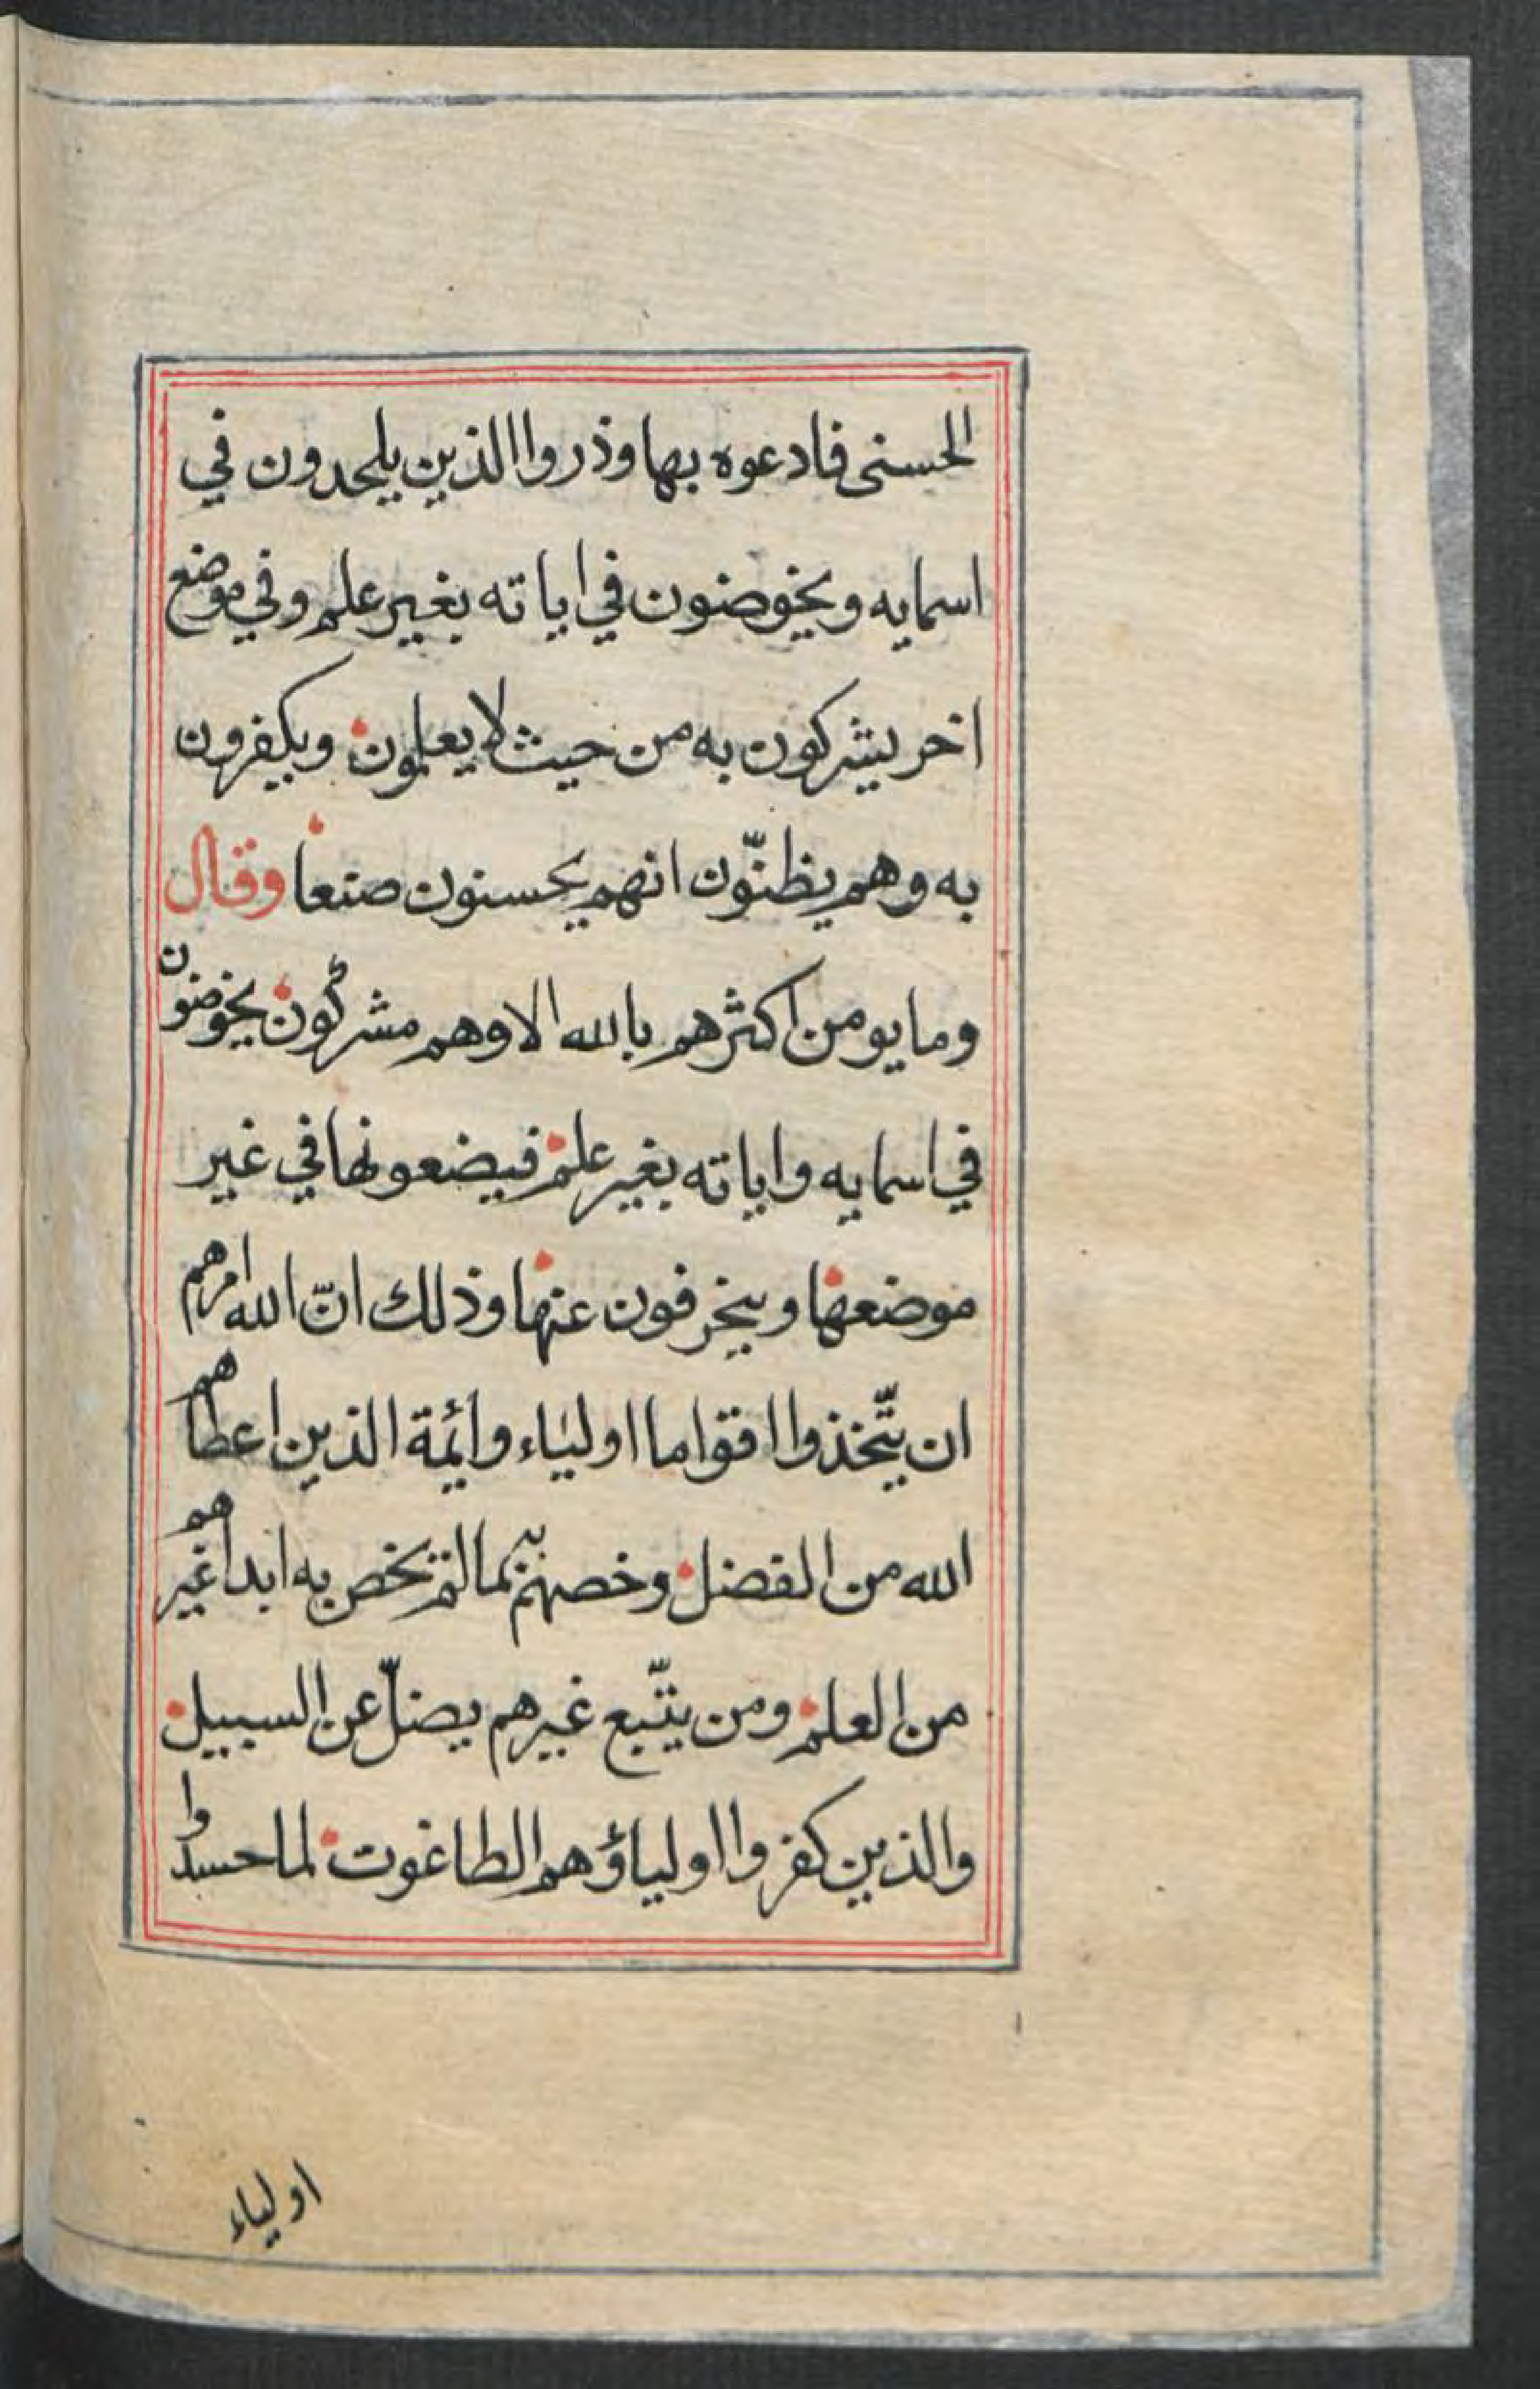 الحسنى فادعوه بها وذروا الذين يلحدون في
اسمايه ويخوضون في اياته بغير علم وفي موضع
اخر يشركون به من حيث لا يعلمون ويكفرون
به وهم يظنّون انهم يحسنون صنعا وقال
وما يومن اكثرهم بالله الا وهم مشركون يخوضون
في اسمايه واياته بغير علم فيضعونها في غير
موضعها وينحرفون عنها وذلك انّ الله امرهم
ان يتّخذوا اقواما اولياء وائمة الذين اعطاهم
الله من الفضل وخصهم بما لم يخص به ابدا غيرهم
من العلم ومن يتّبع غيرهم يضلّ عن السبيل
والذين كفروا اولياؤهم الطاغوت لما حسدوا
اولياء